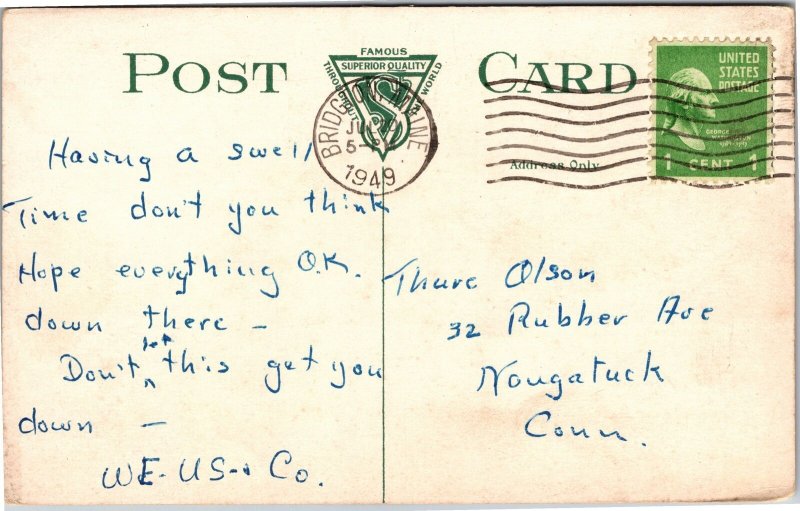 POST CARD
FAMOUS
SUPERIOR QUALITY
THROUGHOUT WORLD
BRIDGTON, MAINE
5
1949
Address Only
UNITED
STATES
POSTAGE
GEORGE
WASHINGTON
1 CENT 1
Having a swell
Time don't you think
Hope everything O.K.
down there -
Don't let this get you
down -
WE-US-& Co.
Thure Olson
32 Rubber Ave
Nougatuck
Conn.